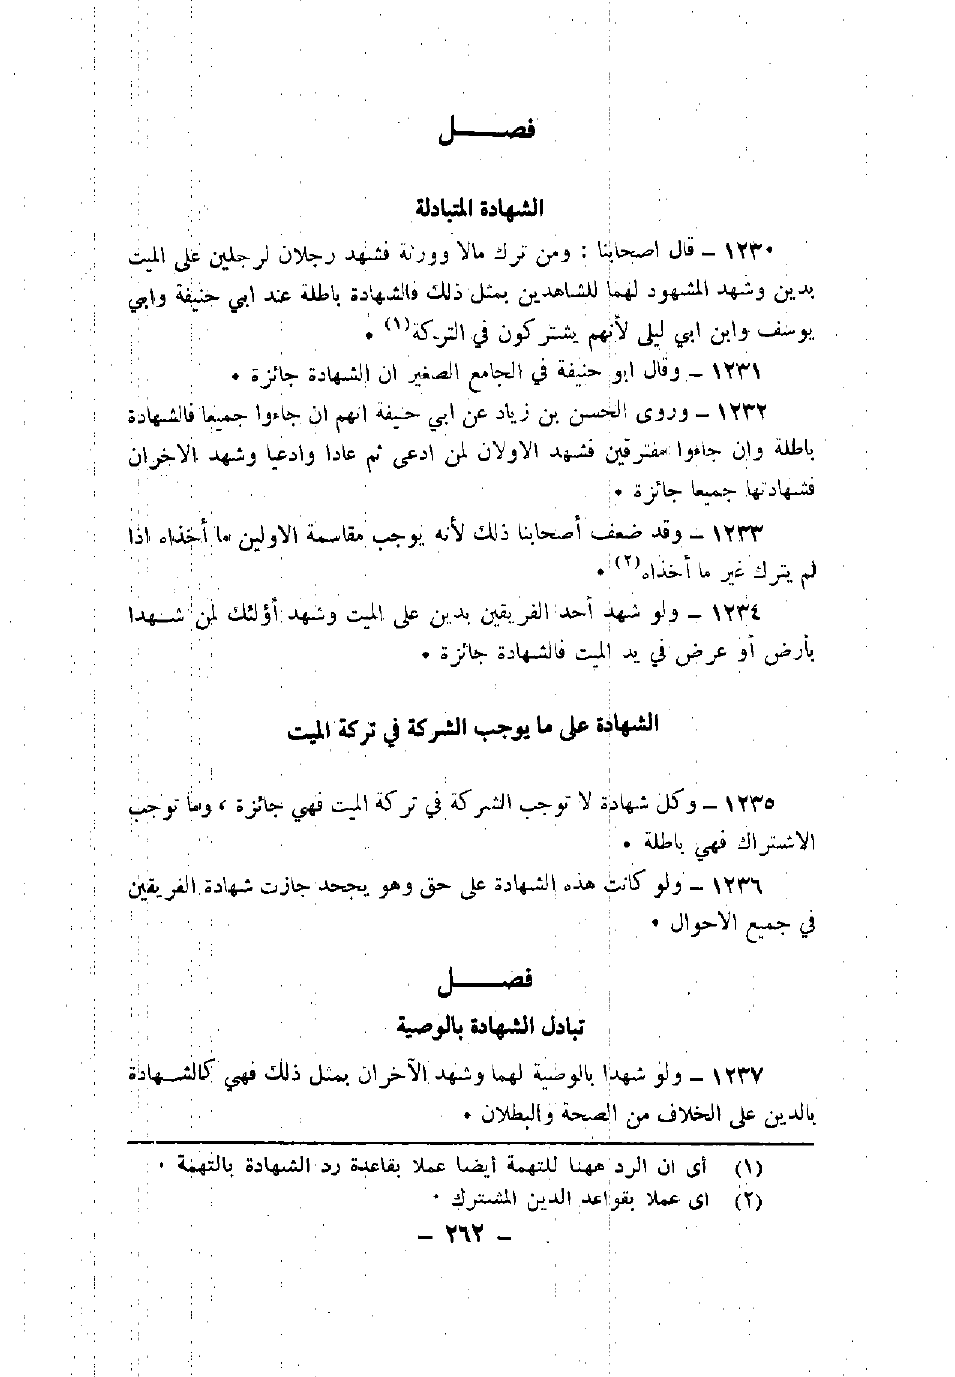 فصــــل
الشهادة المتبادلة
١٢٣٠ ــ قال اصحابنا : ومن ترك مالا وورثة فشهد رجلان لرجلين على الميت
بدين وشهد المشهود لهما للشاهدين بمثل ذلك فالشهادة باطلة عند ابي حنيفة وابي
يوسف وابن ابي ليلى لأنهم يشتركون في التركة(١) .
١٢٣١ ــ وقال ابو حنيفة في الجامع الصغير ان الشهادة جائزة .
١٢٣٢ ــ وروى الحسن بن زياد عن ابي حنيفة انهم ان جاءوا جميعا فالشهادة
باطلة وان جاءوا مفترقين فشهد الاولان لمن ادعى ثم عادا وادعيا وشهد الاخران
فشهادتها جميعا جائزة .
١٢٣٣ ــ وقد ضعف أصحابنا ذلك لأنه يوجب مقاسمة الاولين ما أخذاه اذا
لم يترك غير ما أخذاه(٢) .
١٢٣٤ ــ ولو شهد أحد الفريقين بدين على الميت وشهد أؤلئك لمن شــهدا
بأرض أو عرض في يد الميت فالشهادة جائزة .
الشهادة على ما يوجب الشركة في تركة الميت
١٢٣٥ ــ وكل شهادة لا توجب الشركة في تركة الميت فهي جائزة ، وما توجب
الاشتراك فهي باطلة .
١٢٣٦ ــ ولو كانت هذه الشهادة على حق وهو يجحد جازت شهادة الفريقين
في جميع الاحوال .
فصــــل
تبادل الشهادة بالوصية
١٢٣٧ ــ ولو شهدا بالوصية لهما وشهد الآخران بمثل ذلك فهي كالشــهادة
بالدين على الخلاف من الصحة والبطلان .
(١) أى ان الرد ههنا للتهمة أيضا عملا بقاعدة رد الشهادة بالتهمة .
(٢) اى عملا بقواعد الدين المشترك .
ــ ٢٦٢ ــ